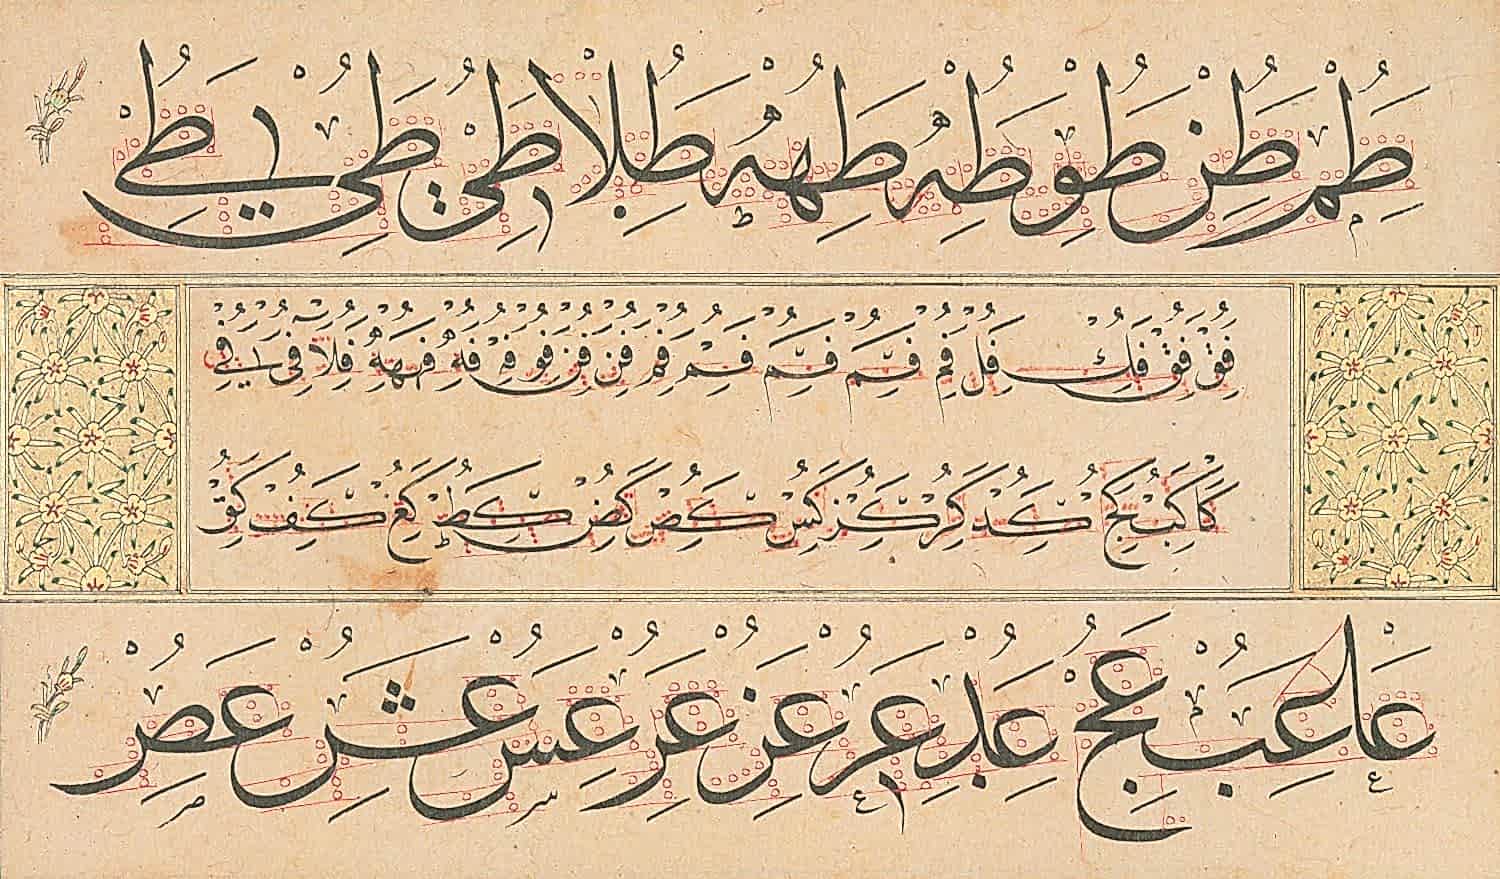 طم طن طو طه طهه طلا طي طي طے
فق فق فك فل فم فم فم فم فم فن فن فو فه فه فهه فلا في في
كا كب كج كد كر كز كس كص كض كط كغ كف كق
عا عب عج عد عر عز عر عس عش عص